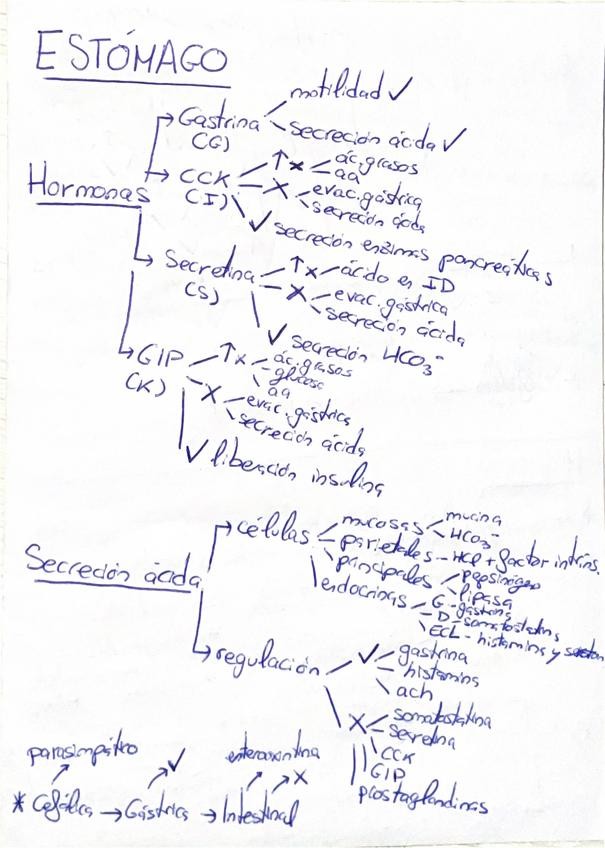 ESTÓMAGO
motilidad ✓
Gastrina
(G)
secreción ácida ✓
Hormonas
CCK
(I)
↑x
ác. grasos
aa
X
evac. gástrica
secreción ácida
✓ secreción enzimas pancreáticas
Secretina
(S)
↑x ácido en ID
X
evac. gástrica
secreción ácida
✓ secreción HCO3-
GIP
(K)
↑x
ác. grasos
glucosa
aa
X
evac. gástrica
secreción ácida
✓ liberación insulina
Secreción ácida
células
mucosas
mucina
HCO3-
parietales - HCl + factor intríns.
principales
pepsinógeno
lipasa
endocrinas
G - gastrina
D - somatostatina
ECL - histamina y
regulación
✓
gastrina
histamina
ach
X
somatostatina
secretina
CCK
GIP
prostaglandinas
parasimpático
✓
X
* Cefálica → Gástrica → Intestinal